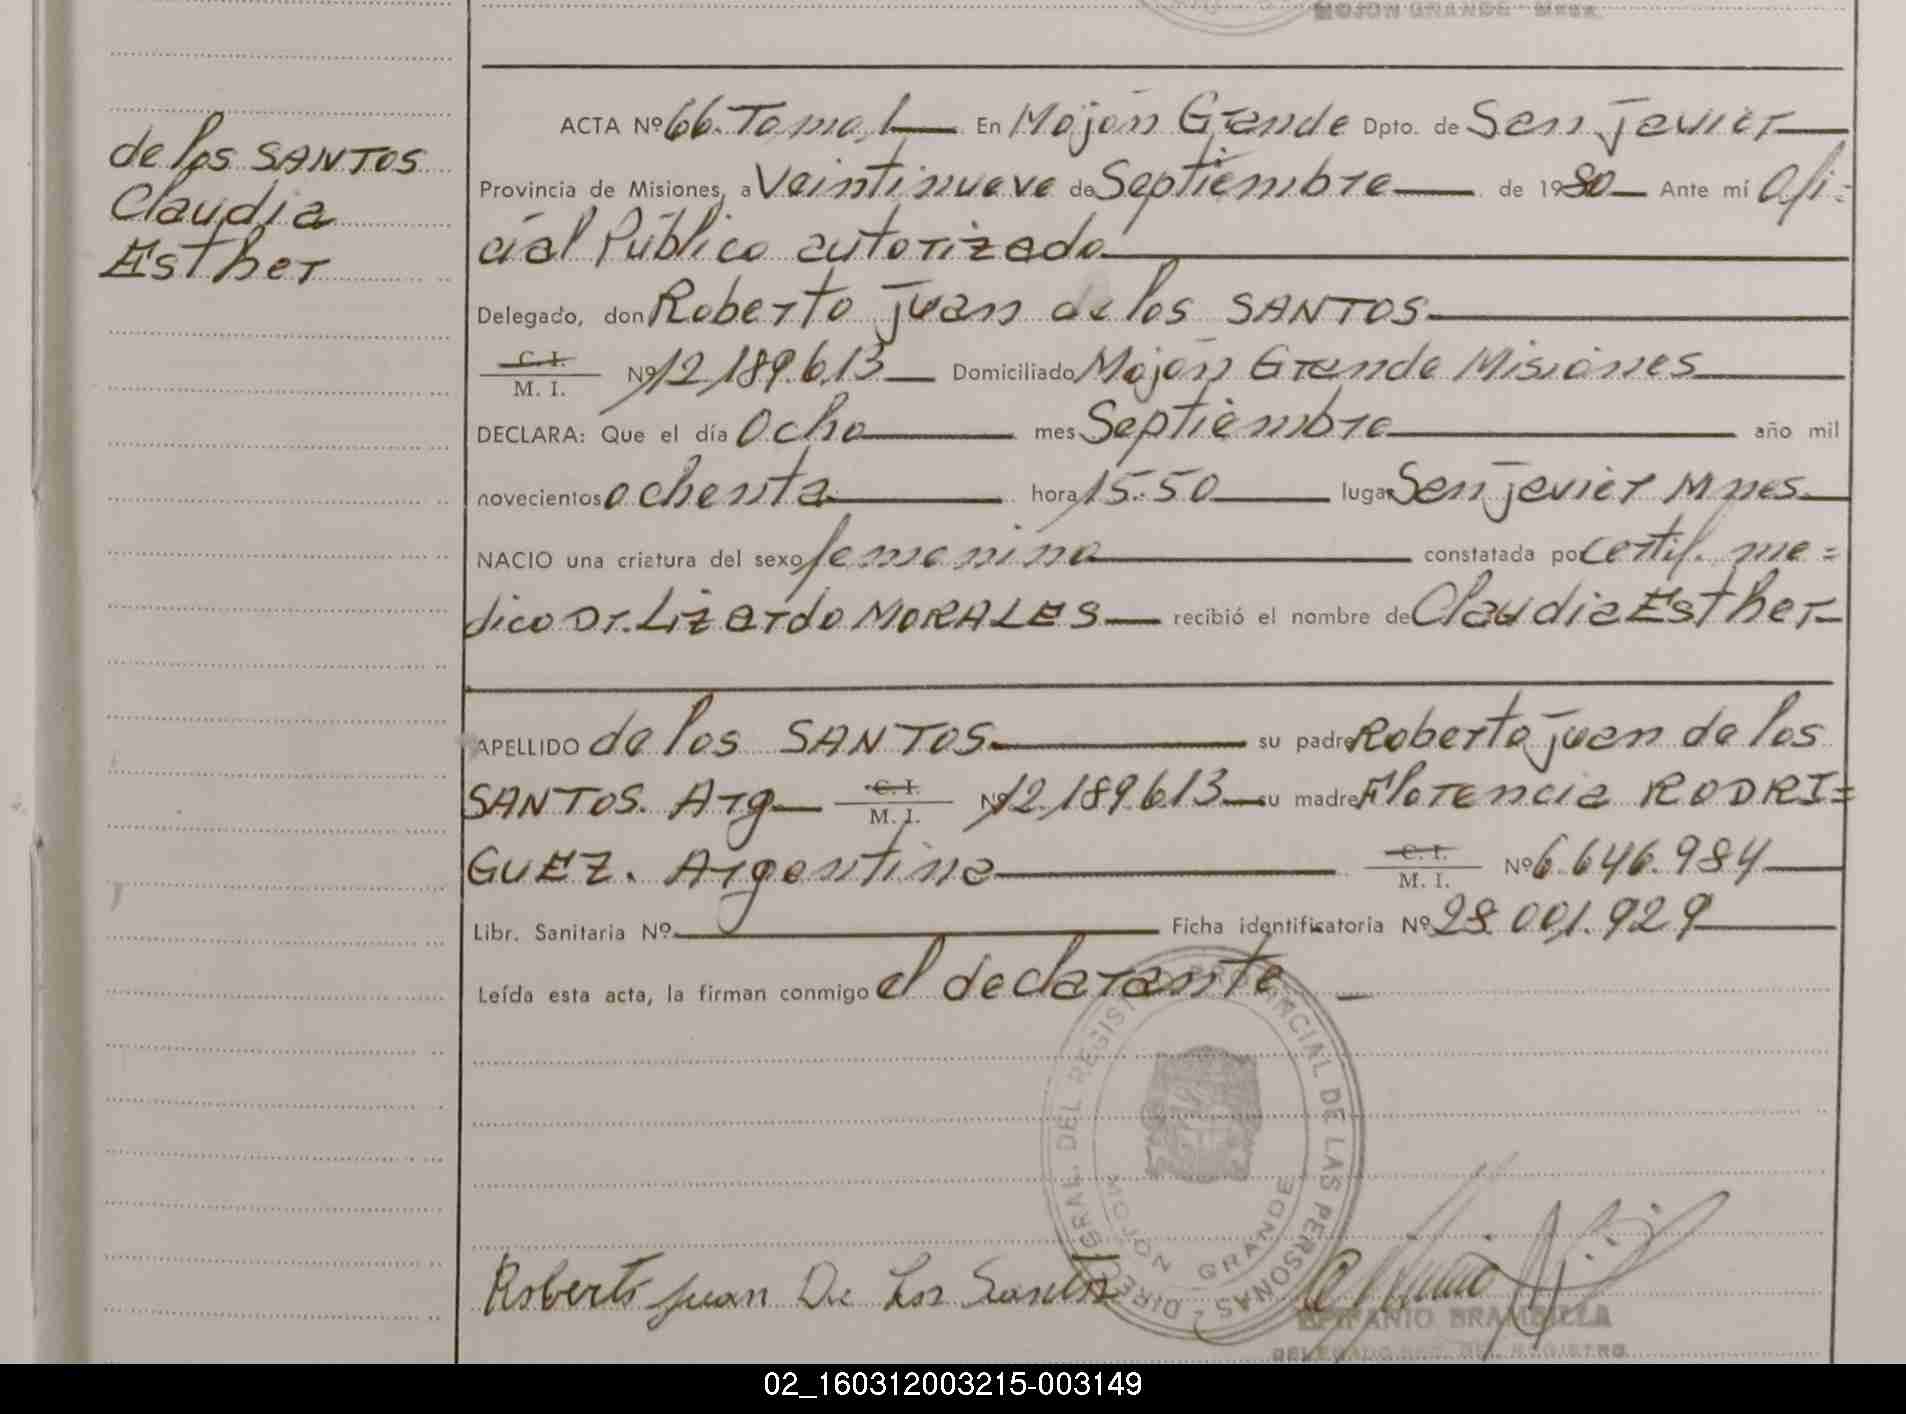 MOJON GRANDE - Mnes.
de los SANTOS
Claudia
Esther
ACTA Nº 66. Tomo 1 En Mojón Grande Dpto. de San Javier
Provincia de Misiones, a Veintinueve de Septiembre de 1980 Ante mí Ofi=
cial Público autorizado
Delegado, don Roberto Juan de los SANTOS
C. I.
M. I. Nº 12.189.613 Domiciliado Mojón Grande Misiones
DECLARA: Que el día Ocho mes Septiembre año mil
novecientos ochenta hora 15:50 lugar San Javier Mnes
NACIO una criatura del sexo femenino constatada por certif. me=
dico Dr. Lizardo MORALES recibió el nombre de Claudia Esther
APELLIDO de los SANTOS su padre Roberto Juan de los
SANTOS. Arg C. I. M. I. Nº 12.189.613 su madre Florencia RODRI=
GUEZ. Argentina C. I. M. I. Nº 6.646.984
Libr. Sanitaria Nº Ficha identificatoria Nº 28.001.929
Leída esta acta, la firman conmigo el declarante
DIREC. GRAL. DEL REGISTRO PROVINCIAL DE LAS PERSONAS -
MOJÓN GRANDE
Roberto Juan De Los Santos
EPIFANIO BRAMBILLA
DELEGADO DEL REGISTRO
02_160312003215-003149